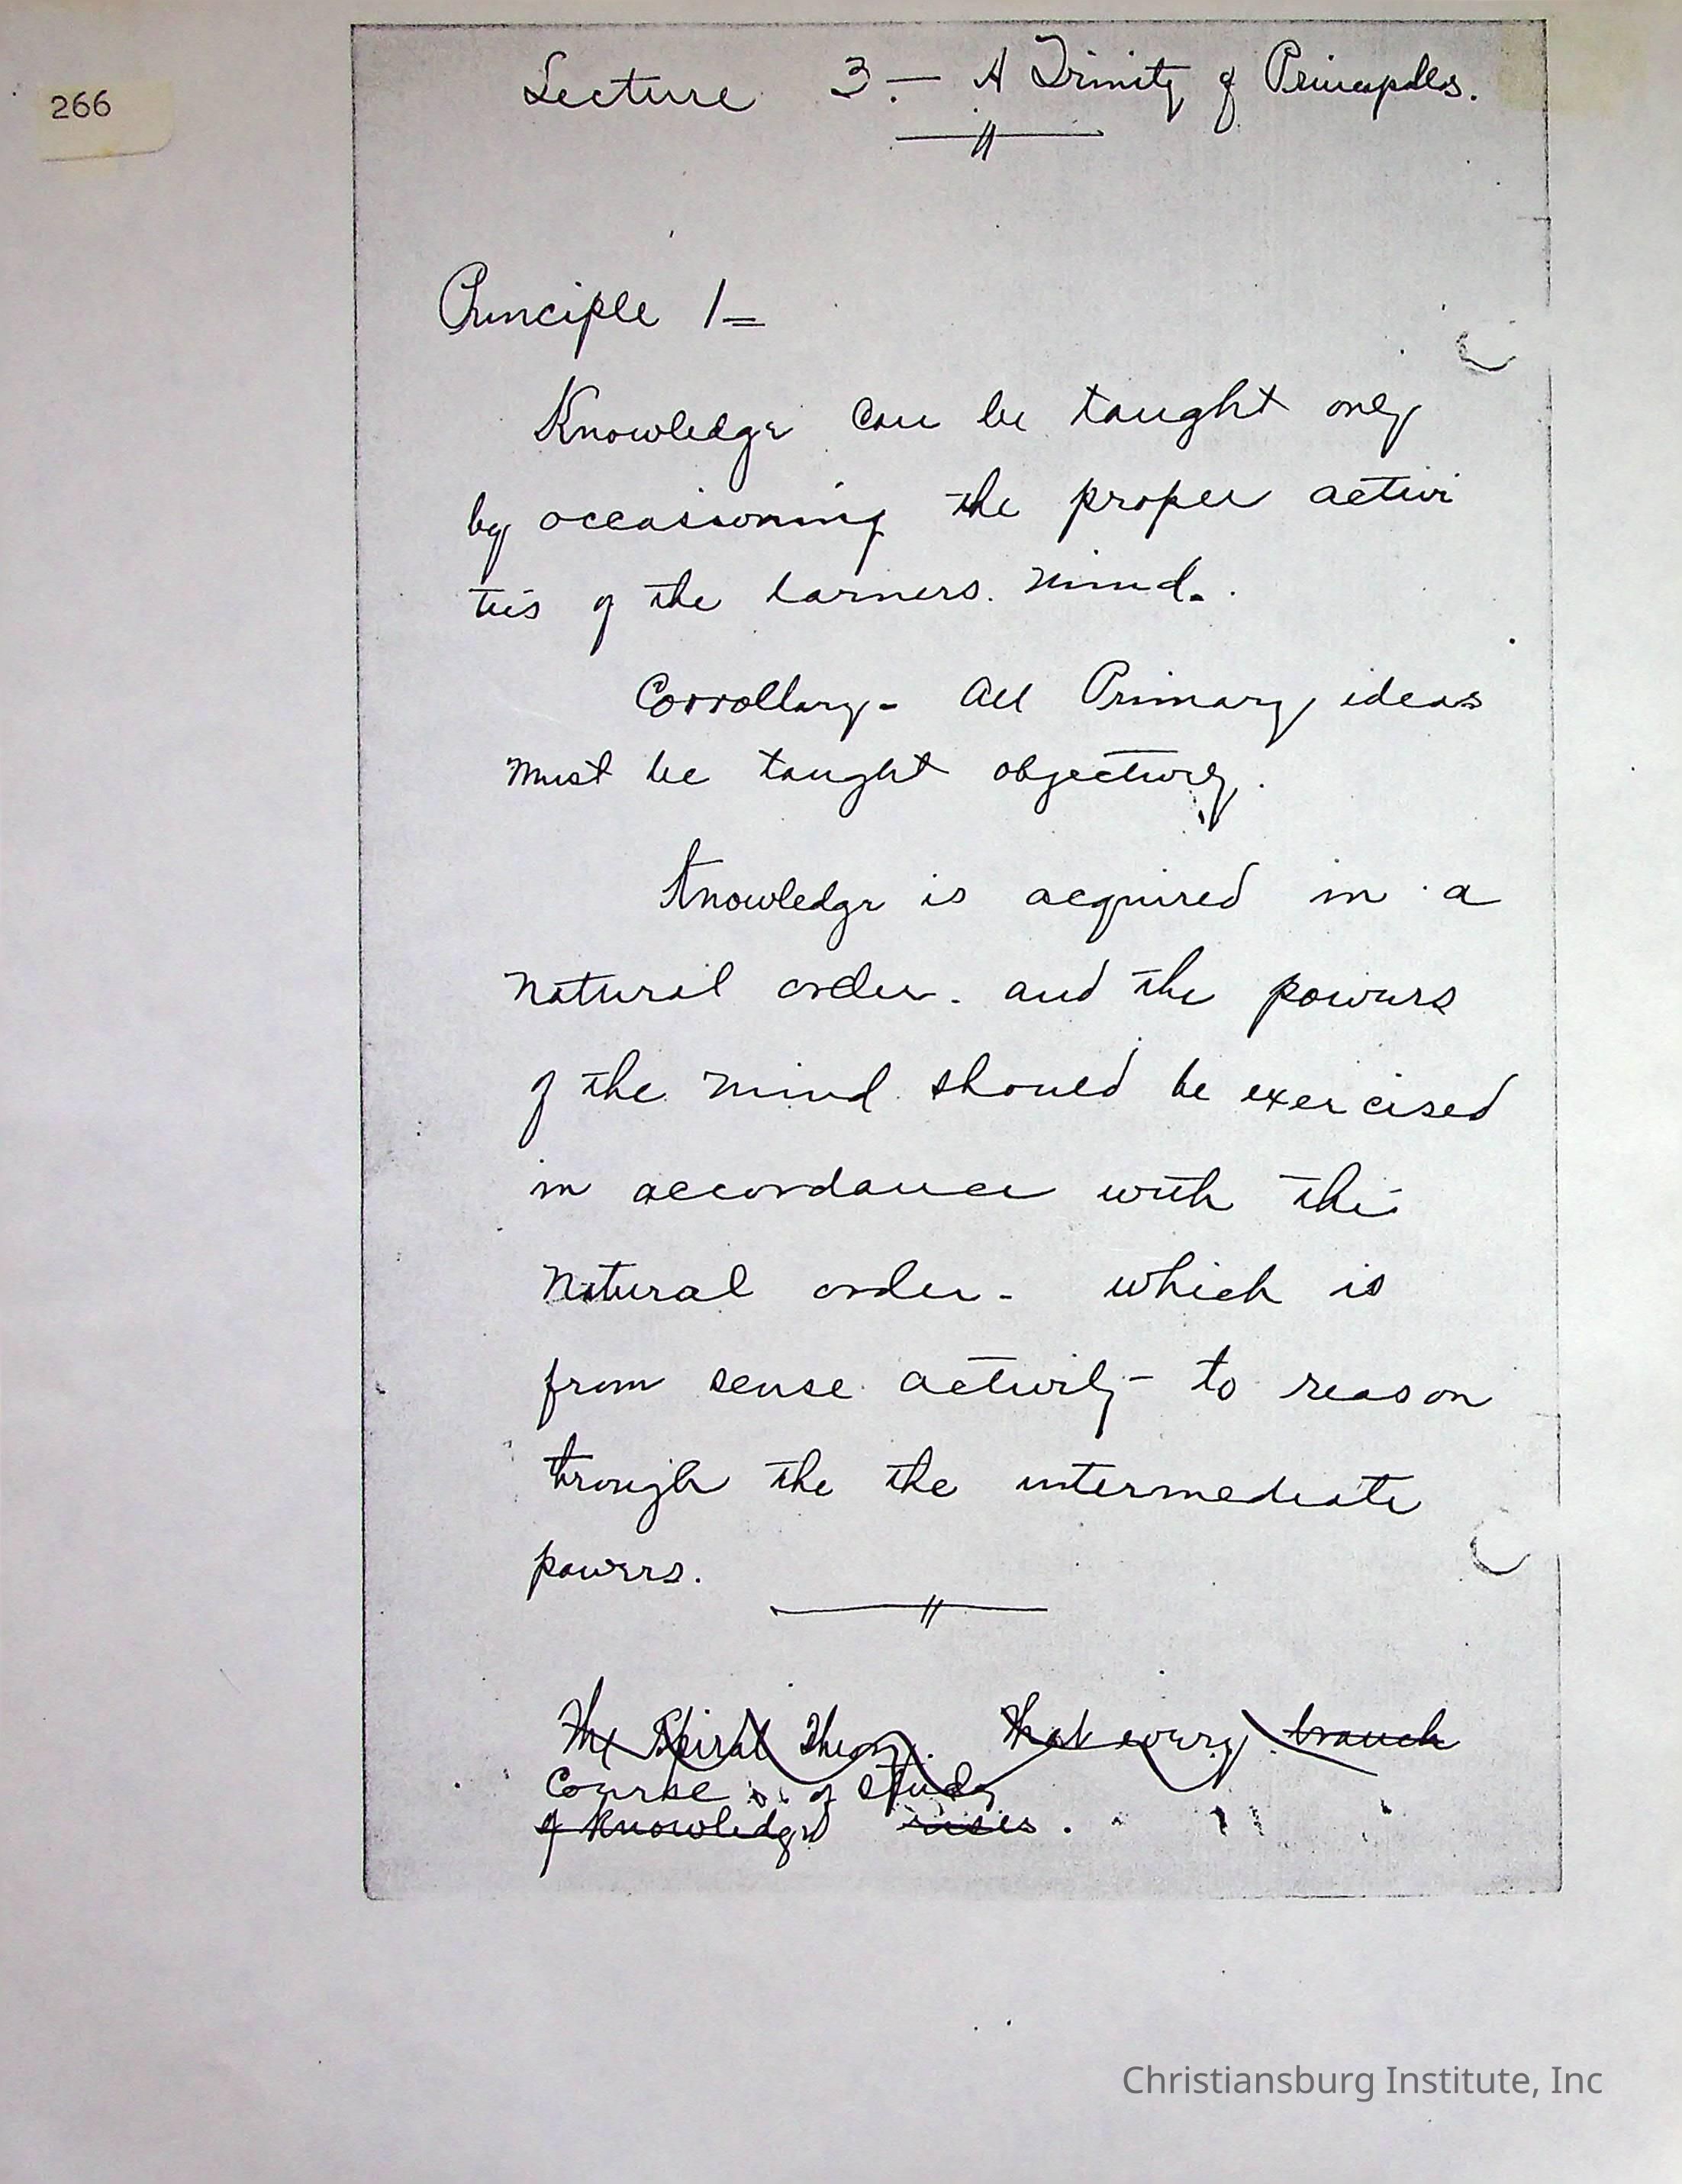 266
Lecture 3.— A Trinity of Principles.
Principle 1=
Knowledge can be taught only
by occasioning the proper activi
ties of the larners. mind.
Corrollary- All Primary ideas
must be taught objectively.
Knowledge is acquired in a
natural order. and the powers
of the mind should be exercised
in accordance with this
natural order - which is
from sense activity - to reason
trough the the intermediate
powers.
The Spiral Theory. That every branch
Course of study
of knowledge rises.
Christiansburg Institute, Inc